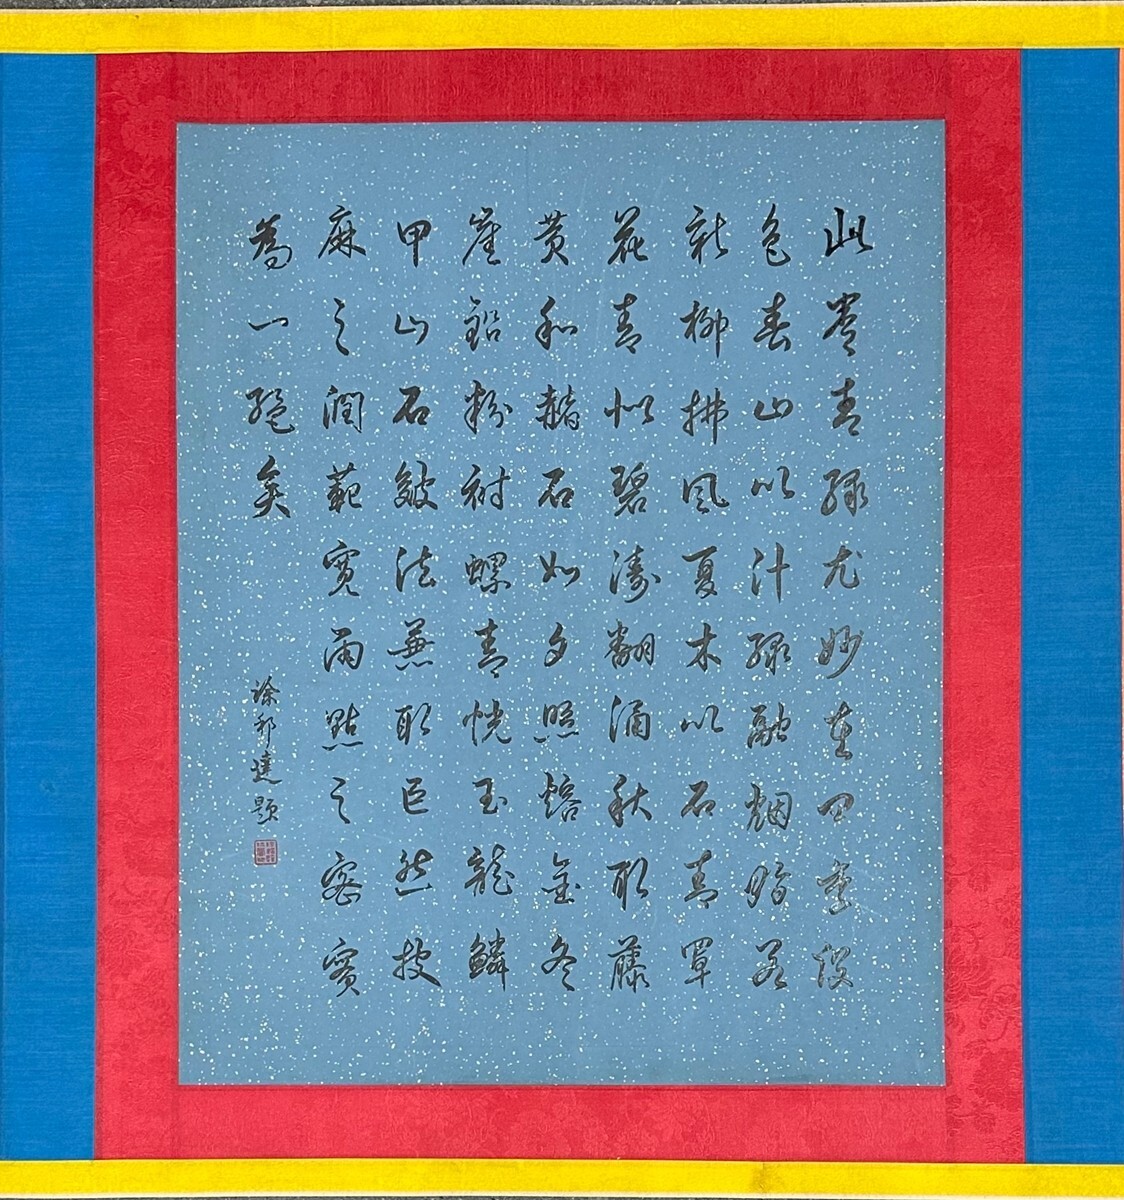 此卷青绿尤妙在四季设
色春山以汁绿融烟暗若
新柳拂风夏木以石青罩
花青似碧涛翻涌秋取藤
黄和赭石如夕照熔金冬
崖铅粉衬螺青恍玉龙鳞
甲山石皴法兼取巨然披
麻之润范宽雨点之密实
为一绝矣
徐邦达题